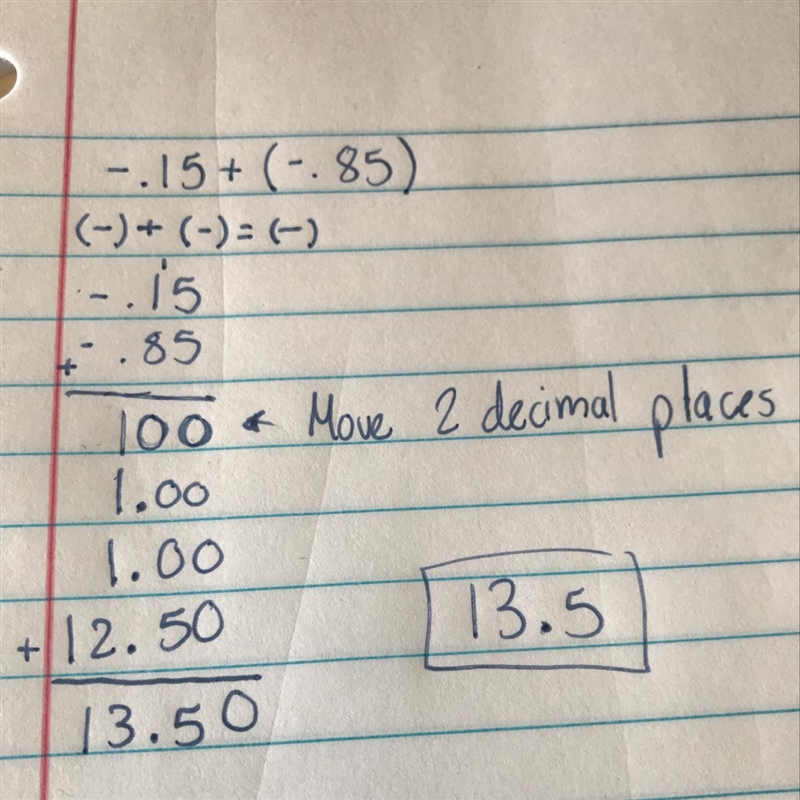 -.15 + (-.85)
(-) + (-) = (-)
1
-.15
+ -.85
100 ← Move 2 decimal places
1.00
1.00
+ 12.50
13.50
13.5